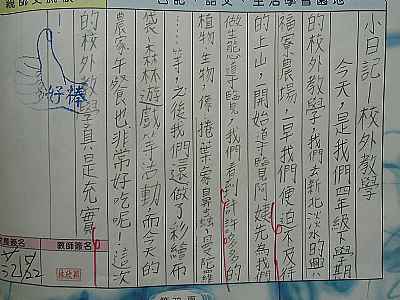 小日記－校外教學
今天，是我們四年級下學期
的校外教學，我們去新北淡水的興
福寮農場，一早我們便迫不及待
的上山，開始導覽，阿姨先為我們
做生態導覽，我們看到許許多多的
植物、生物，像捲葉象鼻蟲、曼陀羅
……等，之後我們還做了彩繪布
袋、森林遊戲等活動，而今天的
農家午餐也非常好吃呢！這次
的校外教學真是充實！
好棒
教師簽名